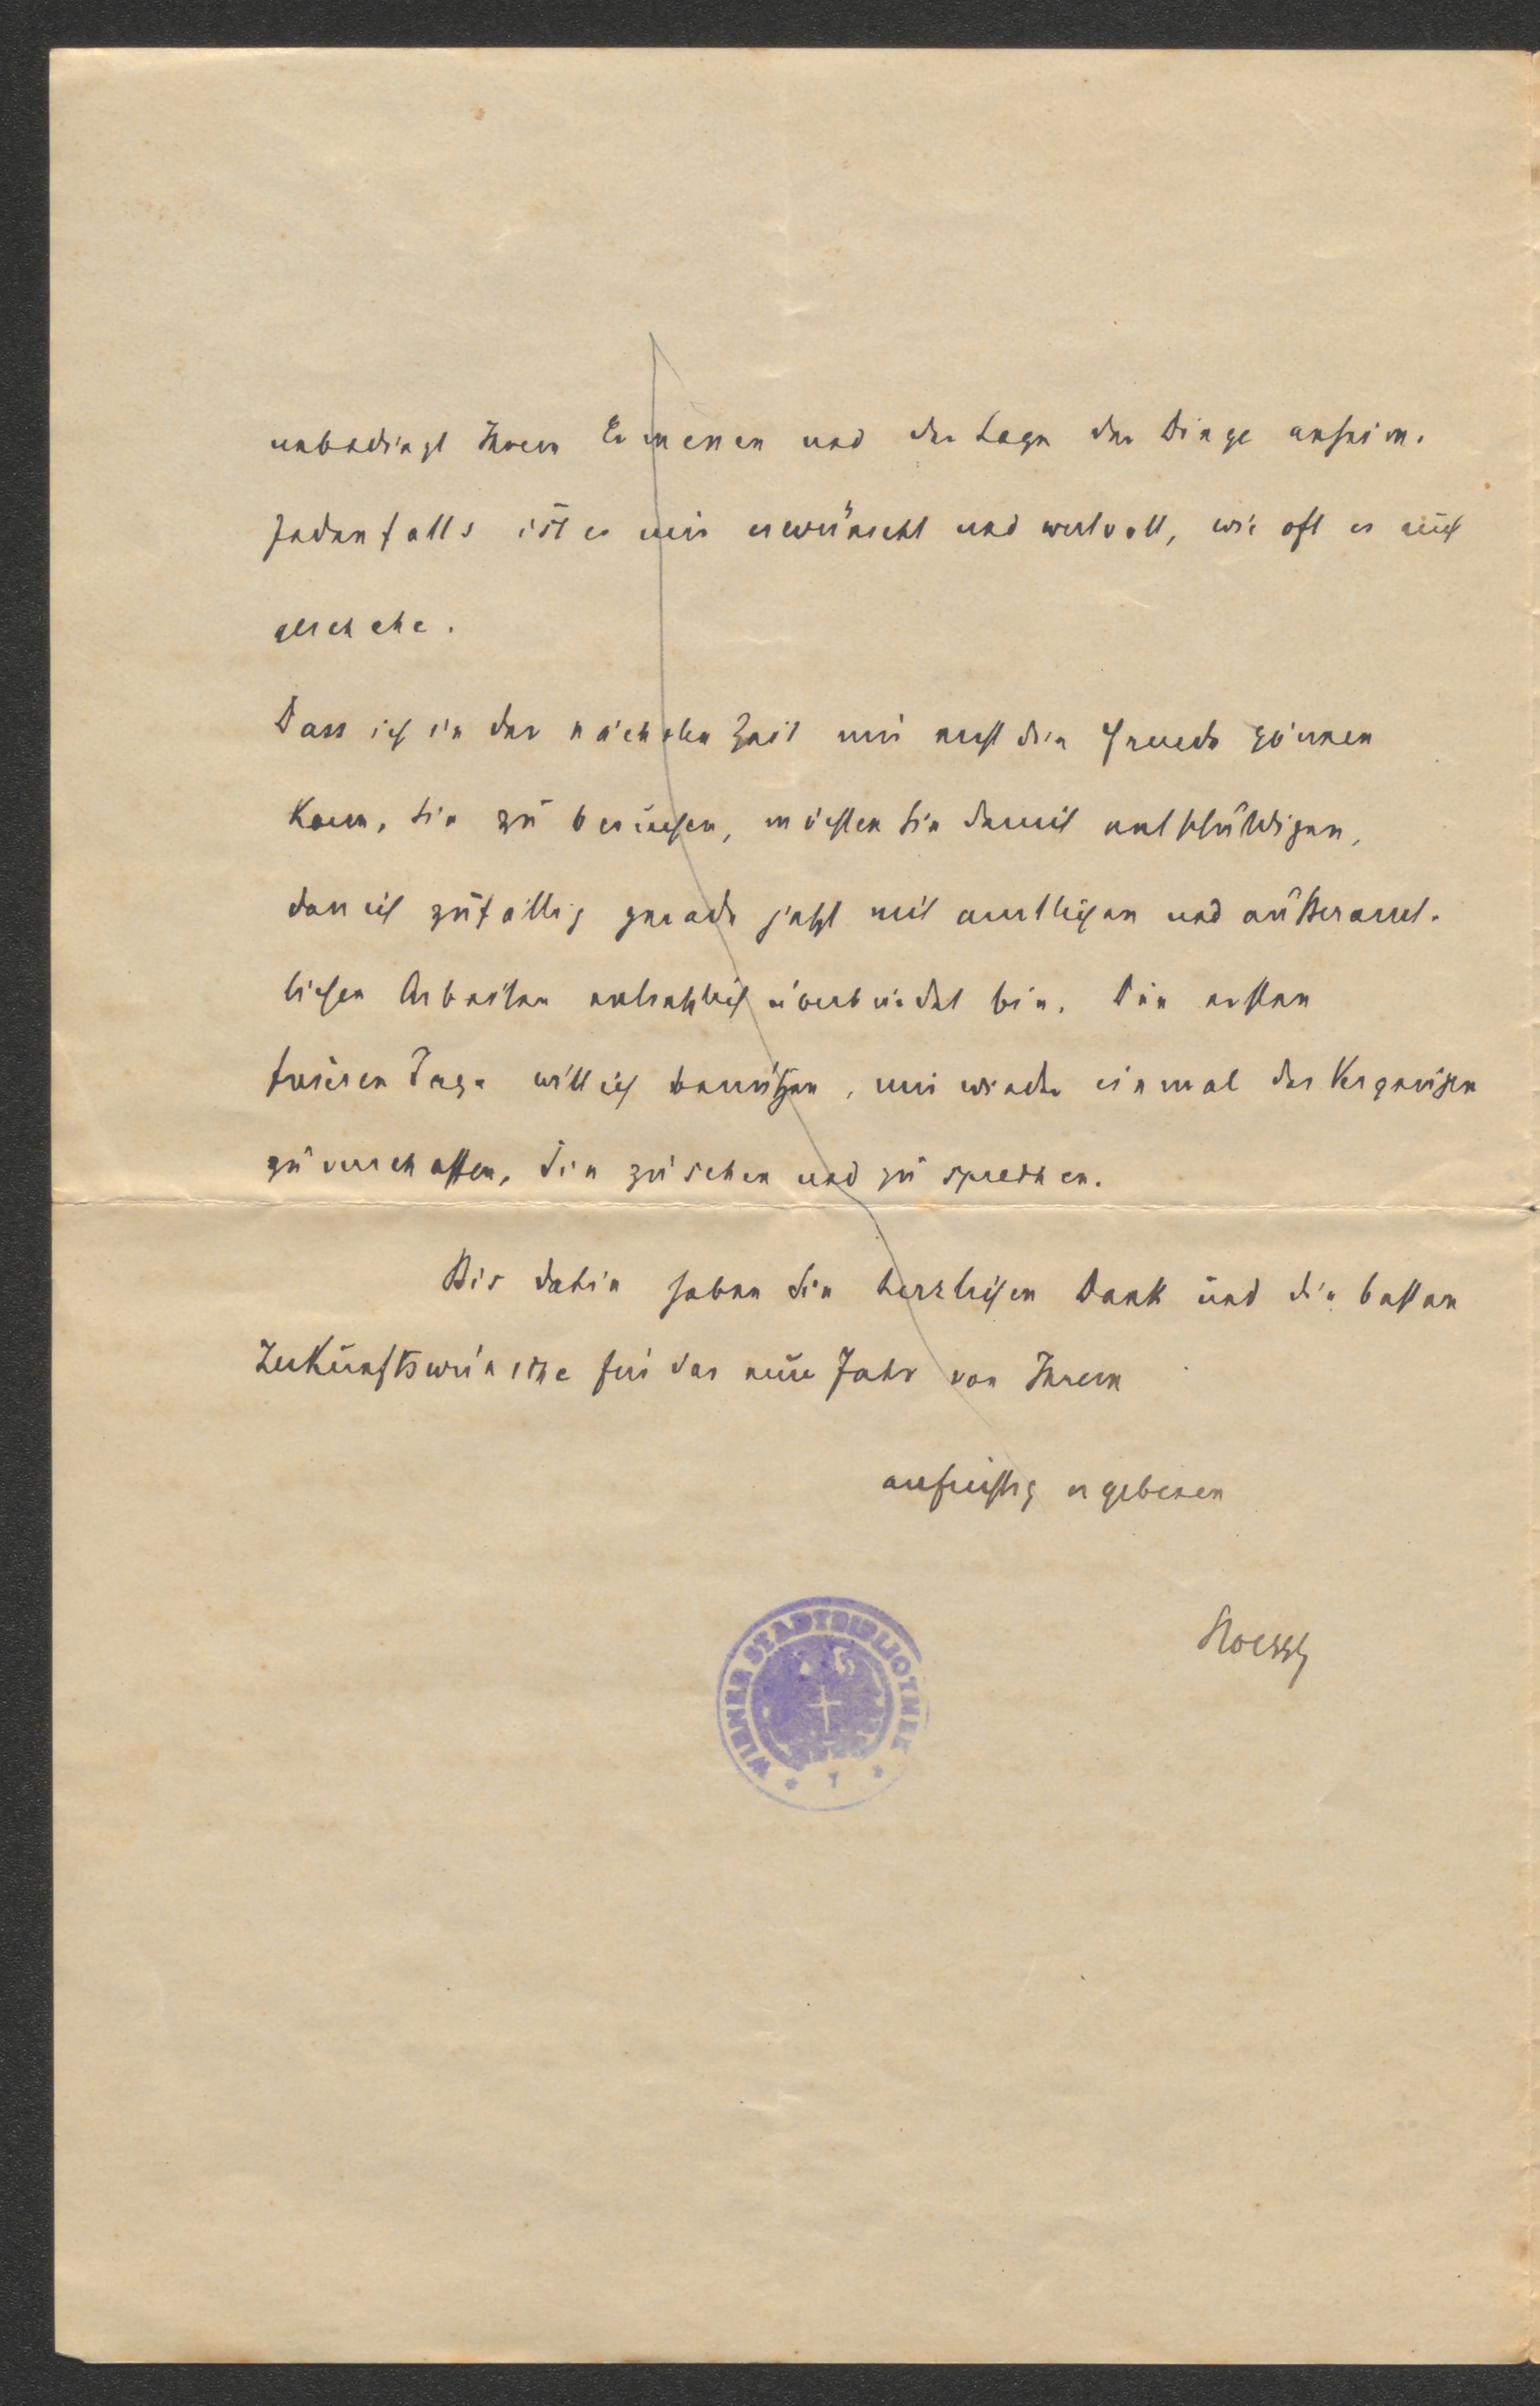 unbedingt Ihrem Ermessen und der Lage der Dinge anheim.
Jedenfalls ist es mir erwünscht und wertvoll, wie oft es auch
geschehe.
Dass ich in der nächsten Zeit mir nicht die Freude gönnen
kann, Sie zu besuchen, möchten Sie damit entschuldigen,
dass ich zufällig gerade jetzt mit amtlichen und außeramt-
lichen Arbeiten entsetzlich überbürdet bin. Die ersten
freieren Tage will ich benützen, mir wieder einmal das Vergnügen
zu verschaffen, Sie zu sehen und zu sprechen.
Bis dahin haben Sie herzlichen Dank und die besten
Zukunftswünsche für das neue Jahr von Ihrem
aufrichtig ergebenen
Stoessl
WIENER STADTBIBLIOTHEK